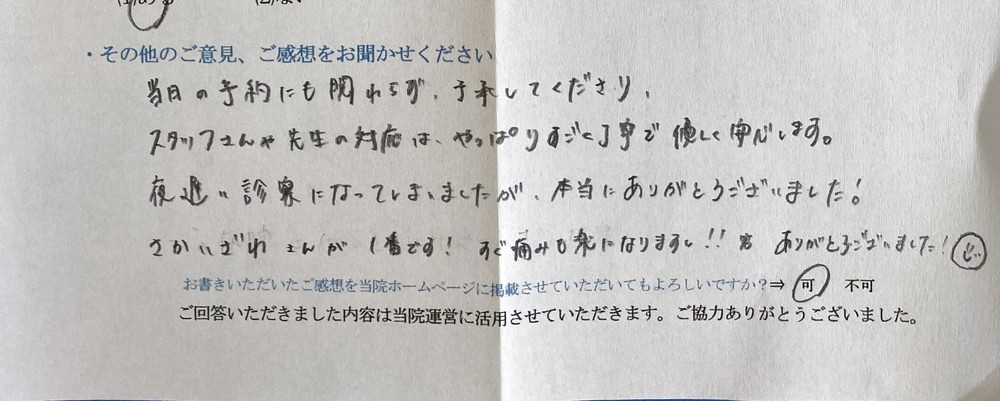 ・その他のご意見、ご感想をお聞かせください
当日の予約にも関わらず、了承してくださり、
スタッフさんや先生の対応は、やっぱりすごく丁寧で優しく安心します。
夜遅い診察になってしまいましたが、本当にありがとうございました!
さかいざわさんが1番です! すぐ痛みも楽になりますし!! ありがとうございました!
お書きいただいたご感想を当院ホームページに掲載させていただいてもよろしいですか?⇒ 可 不可
ご回答いただきました内容は当院運営に活用させていただきます。ご協力ありがとうございました。